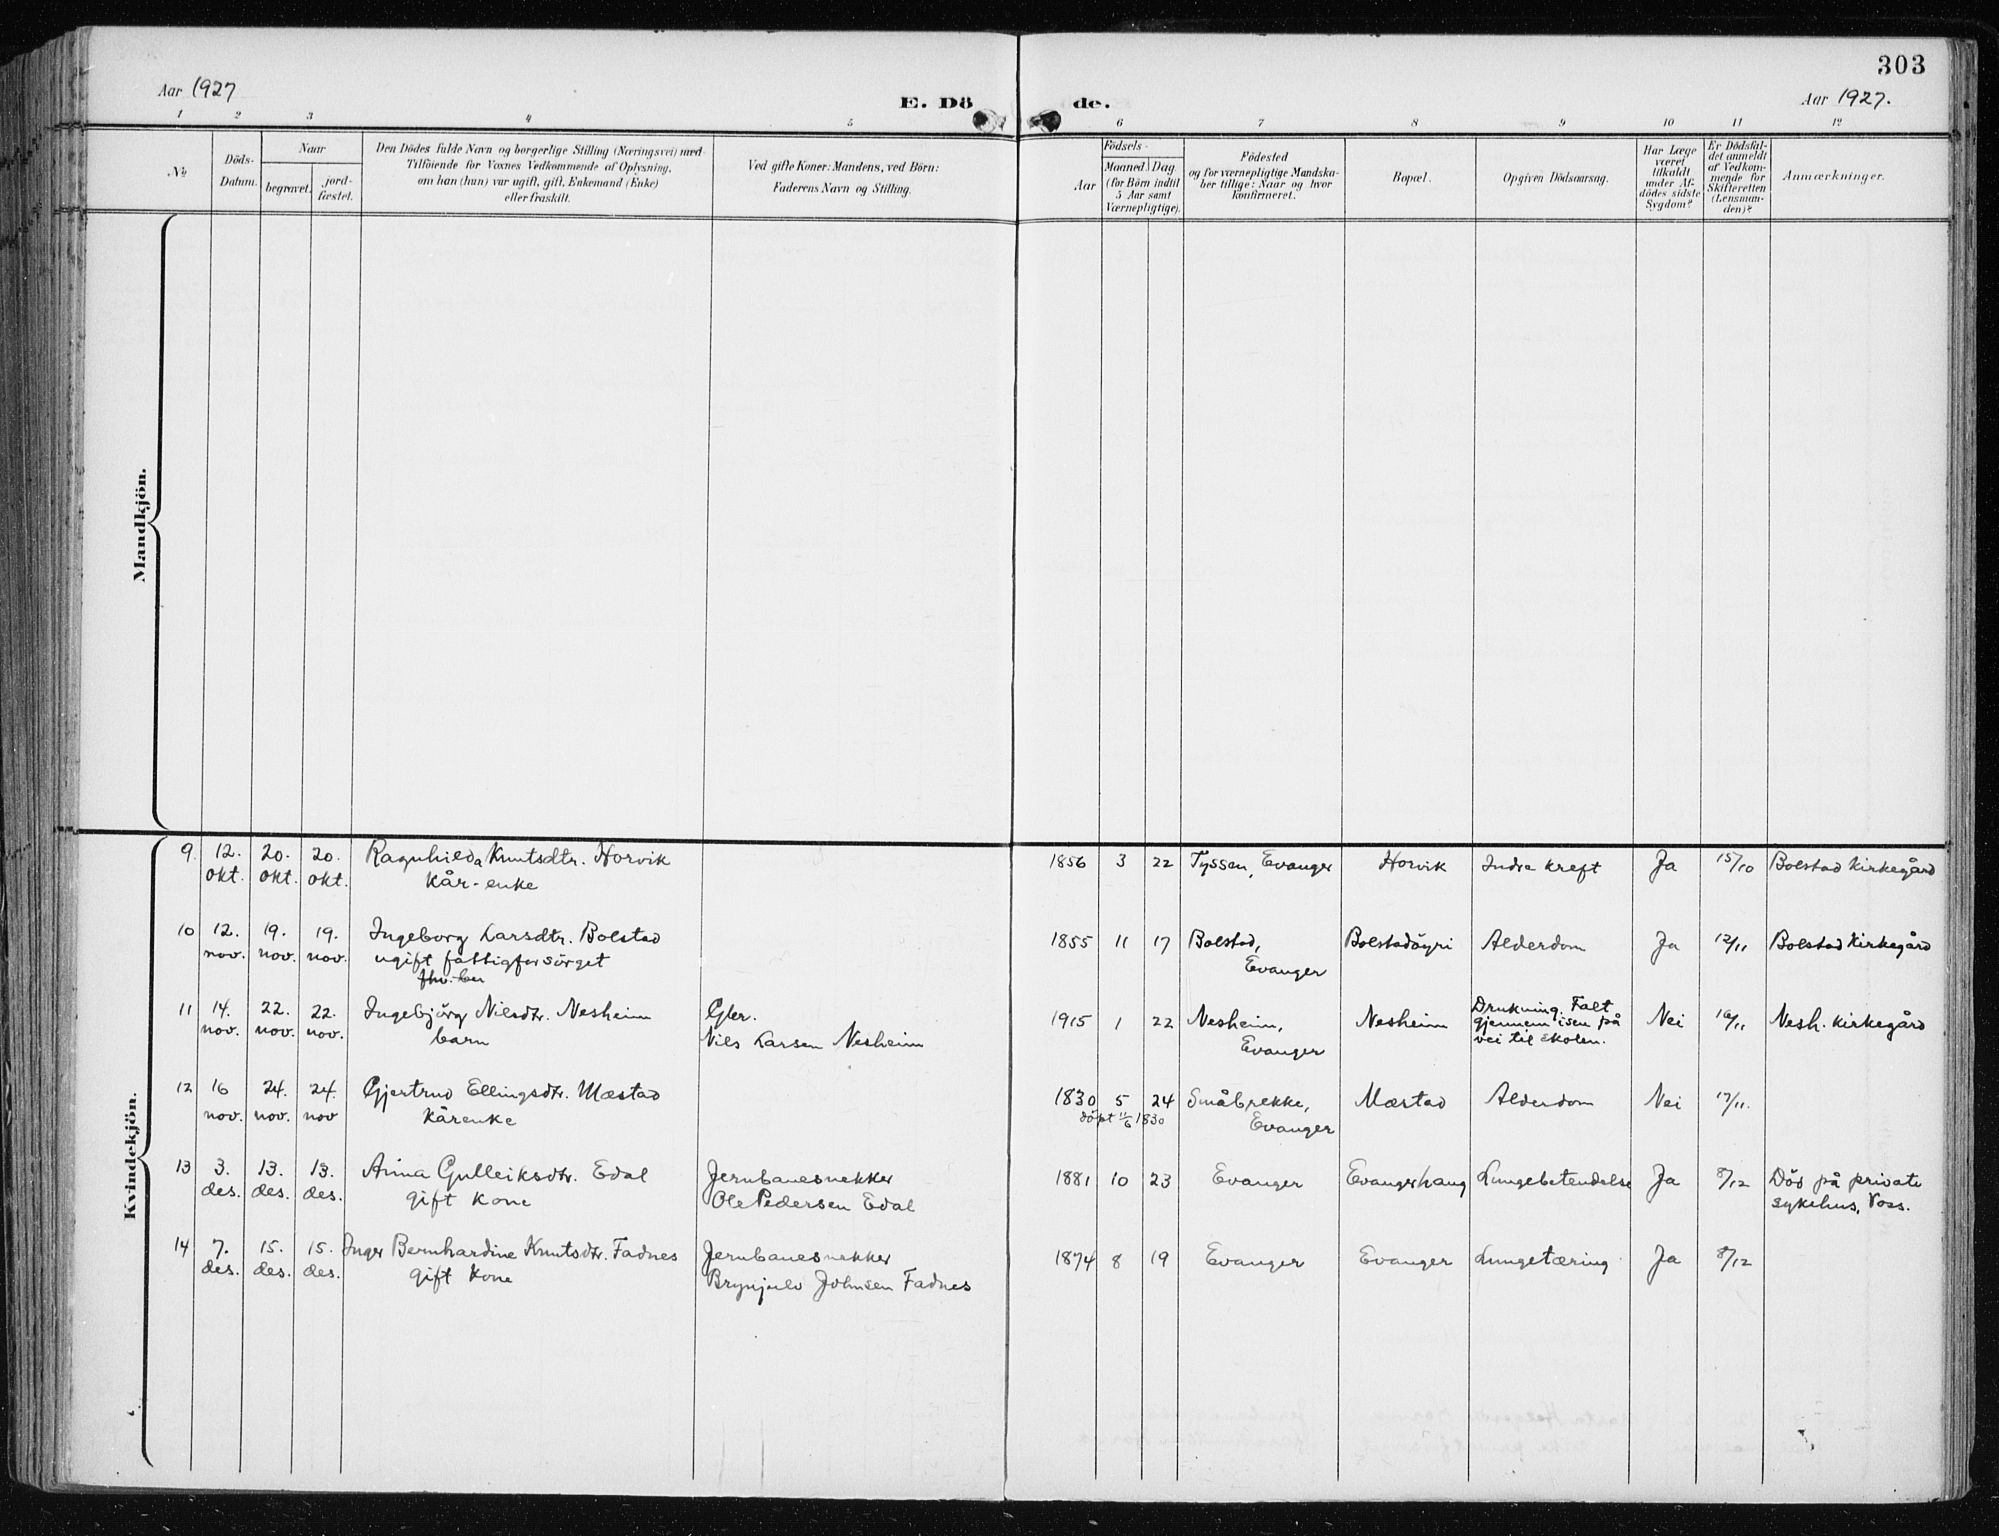 303
Aar 1927
E. Dö de.
Aar 1927.
1 2 3 4 5 6 7 8 9 10 11 12
No
Döds-
Datum.
Naar
begravet.
jord-
fæstet.
Den Dödes fulde Navn og borgerlige Stilling (Næringsvei) med
Tilföiende for Voxnes Vedkommende af Oplysning,
om han (hun) var ugift, gift, Enkemand (Enke)
eller fraskilt.
Ved gifte Koner: Mandens, ved Börn:
Faderens Navn og Stilling.
Födsels-
Aar
Maaned. Dag
(for Börn indtil
5 Aar samt
Værnepligtige).
Födested
og for værnepligtige Mandska-
ber tillige: Naar og hvor
konfirmeret.
Bopæl.
Opgiven Dödsaarsag.
Har Læge
været
tilkaldt
under Af-
dödes sidste
Sygdom?
Er Dödsfal-
det anmeldt
af Vedkom-
mende for
Skifteretten
(Lensman-
den)?
Anmærkninger.
Mandkjön.
Kvindekjön.
9. 12. okt. 20. okt. 20. okt. Ragnhilda Knutsdtr. Horvik
kår-enke
1856 3 22 Tyssen, Evanger Horvik Indre kreft Ja 15/10 Bolstad Kirkegård
10 12. nov. 19. nov. 19. nov. Ingeborg Larsdtr. Bolstad
ugift fattigforsörget
1855 11 17 Bolstad,
Evanger
Bolstadöyri Alderdom Ja 12/11 Bolstad Kirkegård
11 14. nov. 22. nov. 22. nov. Ingebjörg Nilsdtr. Nesheim
barn
Gbr.
Nils Larsen Nesheim
1915 1 22 Nesheim,
Evanger
Nesheim
Drukning. Falt
gjennem isen på
vei til skolen.
Nei 16/11 Nesh. kirkegård
12 16 nov. 24. nov. 24. nov Gjertrud Ellingsdtr. Mæstad
kårenke
1830 5 24
döpt 11/6 1830
Småbrekke,
Evanger
Mæstad Alderdom Nei 17/11.
13 3. des. 13. des. 13. des. Anna Gulleiksdtr. Edal
gift kone
Jernbanesnekker
Ole Pedersen Edal
1881 10 23 Evanger Evangerhaug Lungebetendelse Ja 8/12 Död på private
sykehus, Voss.
14 7. des. 15. des. 15. des. Inger Bernhardine Knutsdtr. Fadnes
gift kone
Jernbanesnekker
Brynjulv Johnsen Fadnes
1874 8 19 Evanger Evanger Lungetæring Ja 8/12